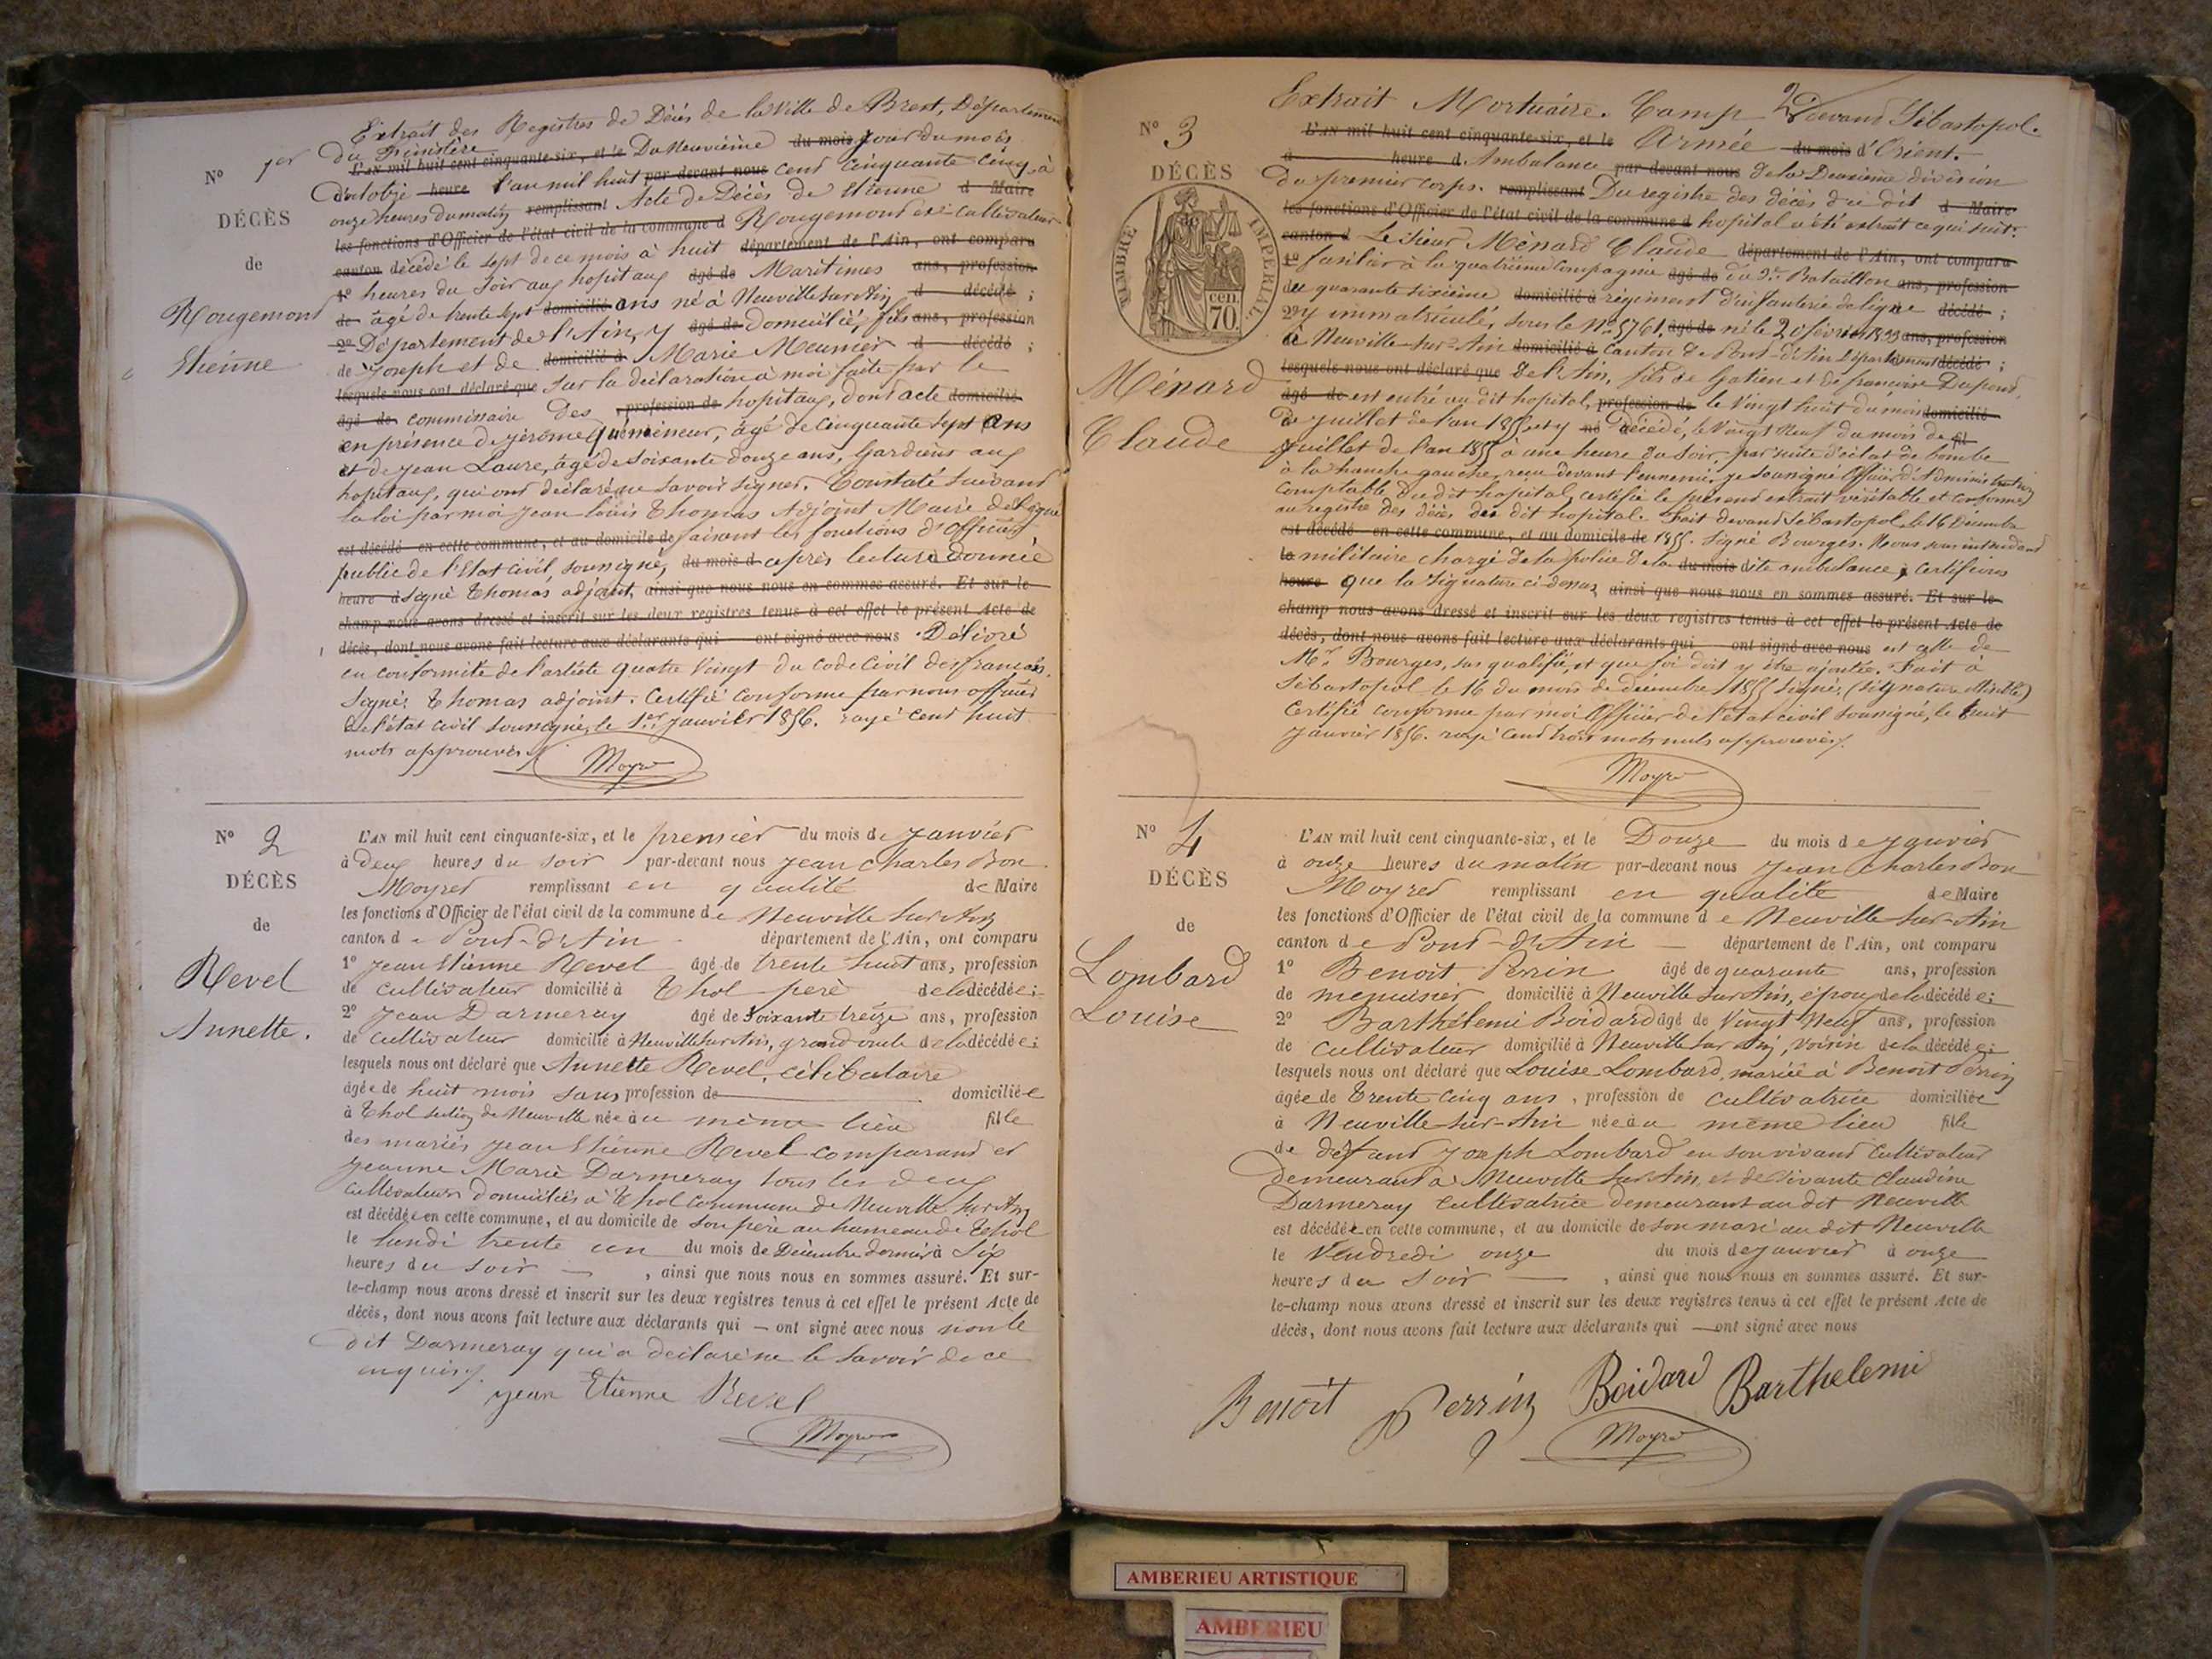 Extrait des Registres de Décès de la Ville de Brest, Département
du Finistère
N° 1er
L'AN mil huit cent cinquante-six, et le Du Neuvième du mois jour du mois
d'octobre heure l'an mil huit par devant nous cent cinquante cinq, à
DÉCÈS
onze heures du matin remplissant Acte de Décès de Etienne d Maire
les fonctions d'Officier de l'état civil de la commune d Rougemont cultivateur
de
canton décédé le sept de ce mois à huit département de l'Ain, ont comparu
1° heures du soir aux hopitaux âgé de Maritimes ans, profession
Rougemont
de âgé de trente sept domicilié ans né à Neuville sur Ain d décédé ;
2° Département de l'Ain, y âgé de domicilié, fils ans, profession
Etienne
de Joseph et de domicilié à Marie Meunier d décédé ;
lesquels nous ont déclaré que sur la déclaration à moi faite par le
âgé de commissaire des profession de hopitaux, dont acte domicilié
en présence de Jérôme Quémineur, âgé de cinquante sept ans
et de Jean Laure, âgé de soixante douze ans, Gardiens aux
hopitaux, qui ont déclaré ne savoir signer. Constaté suivant
la loi par moi Jean Louis Thomas Adjoint Maire délégué
est décédé en cette commune, et au domicile de faisant les fonctions d'officier
public de l'Etat civil, soussigné, du mois d après lecture donnée
heure d signé Thomas adjoint, ainsi que nous nous en sommes assuré. Et sur-le-
champ nous avons dressé et inscrit sur les deux registres tenus à cet effet le présent Acte de
décès, dont nous avons fait lecture aux déclarants qui ont signé avec nous . Délivré
en conformité de l'article quatre vingt du code civil des français.
signé, Thomas adjoint. Certifié conforme par nous officier
de l'état civil soussigné, le 1er janvier 1856. rayé cent huit
mots approuvés.
Moyret
N° 2
DÉCÈS
de
Revel
Annette.
L'AN mil huit cent cinquante-six, et le premier du mois de janvier
à deux heures du soir par-devant nous Jean Charles Bon
Moyret remplissant en qualité de Maire
les fonctions d'Officier de l'état civil de la commune de Neuville sur Ain
canton de Pont-d'Ain département de l'Ain, ont comparu
1° Jean Etienne Revel âgé de trente huit ans, profession
de cultivateur domicilié à Thol père de la décédée ;
2° Jean Darmeray âgé de soixante treize ans, profession
de cultivateur domicilié à Neuville sur Ain, grand oncle de la décédée ;
lesquels nous ont déclaré que Annette Revel, célibataire
âgée de huit mois sans profession de domiciliée
à Thol section de Neuville née au même lieu fille
des mariés Jean Etienne Revel comparant et
Jeanne Marie Darmeray tous les deux
cultivateurs domiciliés à Thol commune de Neuville sur Ain
est décédée en cette commune, et au domicile de son père au hameau de Thol
le lundi trente un du mois de Décembre dernier à six
heures du soir , ainsi que nous nous en sommes assuré. Et sur-
le-champ nous avons dressé et inscrit sur les deux registres tenus à cet effet le présent Acte de
décès, dont nous avons fait lecture aux déclarants qui — ont signé avec nous non le
dit Darmeray qui a déclaré ne le savoir de ce
enquis.
Jean Etienne Revel
Moyret
Extrait Mortuaire. Camp devant Sébastopol.
N° 3
L'AN mil huit cent cinquante-six, et le Armée du mois d'Orient.
à heure d Ambulance par devant nous de la Deuxième division
DÉCÈS
du premier corps. remplissant Du registre des décès du dit d Maire
les fonctions d'Officier de l'état civil de la commune d hopital a été extrait ce qui suit.
canton d Le sieur Ménard Claude département de l'Ain, ont comparu
1° fusilier à la quatrième Compagnie âgé de du 2e Bataillon ans, profession
de quarante sixième domicilié à régiment d'infanterie de ligne décédé ;
2° y immatriculé, sous le N° 5761, âgé de né le 20 février 1833 ans, profession
de Neuville-sur-Ain domicilié à Canton de Pont-d'Ain Département décédé ;
TIMBRE IMPÉRIAL
cen. 70.
Ménard
Claude
lesquels nous ont déclaré que de l'Ain, fils de Gatien et de françoise Dupont,
âgé de est entré au dit hopital, profession de le vingt huit du mois domicilié
de juillet de l'an 1855, et y né décédé, le vingt neuf du mois de fil
juillet de l'an 1855 à une heure du soir, par suite d'éclat de bombe
à la hanche gauche, reçu devant l'ennemi, je soussigné officier d'Administration
comptable du dit hopital certifie le présent extrait véritable et conforme
au registre des décès du dit hopital. Fait devant Sébastopol, le 16 Decembre
est décédé en cette commune, et au domicile de 1855. signé Bourges. Nous sous intendant
le militaire chargé de la police de la du mois dite ambulance, certifions
heure que la signature ci-dessus ainsi que nous nous en sommes assuré. Et sur-le-
champ nous avons dressé et inscrit sur les deux registres tenus à cet effet le présent Acte de
décès, dont nous avons fait lecture aux déclarants qui ont signé avec nous est celle de
Mr. Bourges, sus qualifié, et que foi doit y être ajoutée. Fait à
Sébastopol le 16 du mois de décembre 1855 signé, (signature illisible)
Certifié conforme par moi officier de l'état civil soussigné, le huit
janvier 1856. rayé cent trois mots nuls approuvés.
Moyret
N° 4
DÉCÈS
de
Lombard
Louise
L'AN mil huit cent cinquante-six, et le Douze du mois de janvier
à onze heures du matin par-devant nous Jean Charles Bon
Moyret remplissant en qualité de Maire
les fonctions d'Officier de l'état civil de la commune de Neuville-sur-Ain
canton de Pont-d'Ain — département de l'Ain, ont comparu
1° Benoit Perrin âgé de quarante ans, profession
de menuisier domicilié à Neuville sur Ain, époux de la décédée ;
2° Barthélemi Boidard âgé de vingt neuf ans, profession
de cultivateur domicilié à Neuville sur Ain, voisin de la décédée ;
lesquels nous ont déclaré que Louise Lombard, mariée à Benoit Perrin
âgée de trente cinq ans , profession de cultivatrice domiciliée
à Neuville-sur-Ain née au même lieu fille
de défunt Joseph Lombard en son vivant cultivateur
demeurant à Neuville sur Ain, et de vivante Claudine
Darmeray cultivatrice demeurant au dit Neuville
est décédée en cette commune, et au domicile de son mari au dit Neuville
le Vendredi onze du mois de janvier à onze
heures du soir — , ainsi que nous nous en sommes assuré. Et sur-
le-champ nous avons dressé et inscrit sur les deux registres tenus à cet effet le présent Acte de
décès, dont nous avons fait lecture aux déclarants qui — ont signé avec nous
Benoit Perrin Boidard Barthelemi
Moyret
AMBERIEU ARTISTIQUE
AMBERIEU